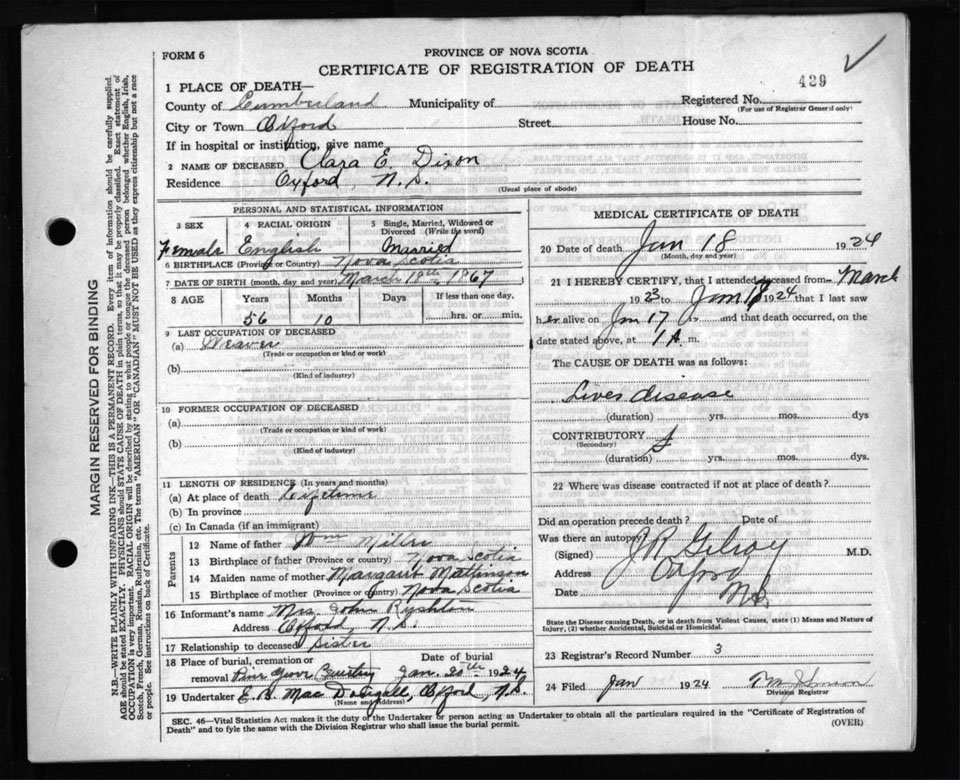 FORM 6
PROVINCE OF NOVA SCOTIA
CERTIFICATE OF REGISTRATION OF DEATH
429
1 PLACE OF DEATH—
County of Cumberland Municipality of Registered No.
(For use of Registrar General only)
City or Town Oxford Street House No.
If in hospital or institution, give name
2 NAME OF DECEASED Clara E. Dixon
Residence Oxford, N.S.
(Usual place of abode)
PERSONAL AND STATISTICAL INFORMATION
3 SEX 4 RACIAL ORIGIN 5 Single, Married, Widowed or Divorced (Write the word)
Female English Married
6 BIRTHPLACE (Province or Country) Nova Scotia
7 DATE OF BIRTH (month, day and year) March 18th, 1867
8 AGE Years Months Days If less than one day.
56 10 hrs. or min.
9 LAST OCCUPATION OF DECEASED
(a) Weaver
(Trade or occupation or kind or work)
(b)
(Kind of industry)
10 FORMER OCCUPATION OF DECEASED
(a)
(Trade or occupation or kind of work)
(b)
(Kind of industry)
11 LENGTH OF RESIDENCE (In years and months)
(a) At place of death Lifetime
(b) In province
(c) In Canada (if an immigrant)
Parents
12 Name of father Wm
13 Birthplace of father (Province or country) Nova Scotia
14 Maiden name of mother Margaret Mattinson
15 Birthplace of mother (Province or country) Nova Scotia
16 Informant's name Mrs. John
Address Oxford, N.S.
17 Relationship to deceased Sister
18 Place of burial, cremation or removal Pine Grove Cemetery Date of burial Jan. 20th 1924
19 Undertaker E. B. Mac Dougall, Oxford, N.S.
(Name and Address)
MEDICAL CERTIFICATE OF DEATH
20 Date of death Jan 18 1924
(Month, day and year)
21 I HEREBY CERTIFY, that I attended deceased from March
1923 to Jan 18 1924 that I last saw
her alive on Jan 17 and that death occurred, on the
date stated above, at 1 A. m.
The CAUSE OF DEATH was as follows:
Liver disease
(duration) yrs. mos. dys
CONTRIBUTORY
(Secondary)
(duration) yrs. mos. dys.
22 Where was disease contracted if not at place of death?
Did an operation precede death? Date of
Was there an autopsy?
(Signed) J R Gilroy M.D.
Address Oxford
Date N.S.
State the Disease causing Death, or in death from Violent Causes, state (1) Means and Nature of Injury, (2) whether Accidental, Suicidal or Homicidal.
23 Registrar's Record Number 3
24 Filed Jan 1924
Division Registrar
SEC. 46—Vital Statistics Act makes it the duty of the Undertaker or person acting as Undertaker to obtain all the particulars required in the "Certificate of Registration of
Death" and to fyle the same with the Division Registrar who shall issue the burial permit. (OVER)
MARGIN RESERVED FOR BINDING
N.B.—WRITE PLAINLY WITH UNFADING INK—THIS IS A PERMANENT RECORD. Every item of information should be carefully supplied.
AGE should be stated EXACTLY. PHYSICIANS should STATE CAUSE OF DEATH in plain terms, so that it may be properly classified. Exact statement of
OCCUPATION is very important. RACIAL ORIGIN will be described by stating to what people or tongue the deceased person belonged whether English, Irish,
Scotch, French, German, Russian, Ruthenian, etc. The terms "AMERICAN" OR "CANADIAN" MUST NOT BE USED as they express citizenship but not a race
or people. See instructions on back of Certificate.